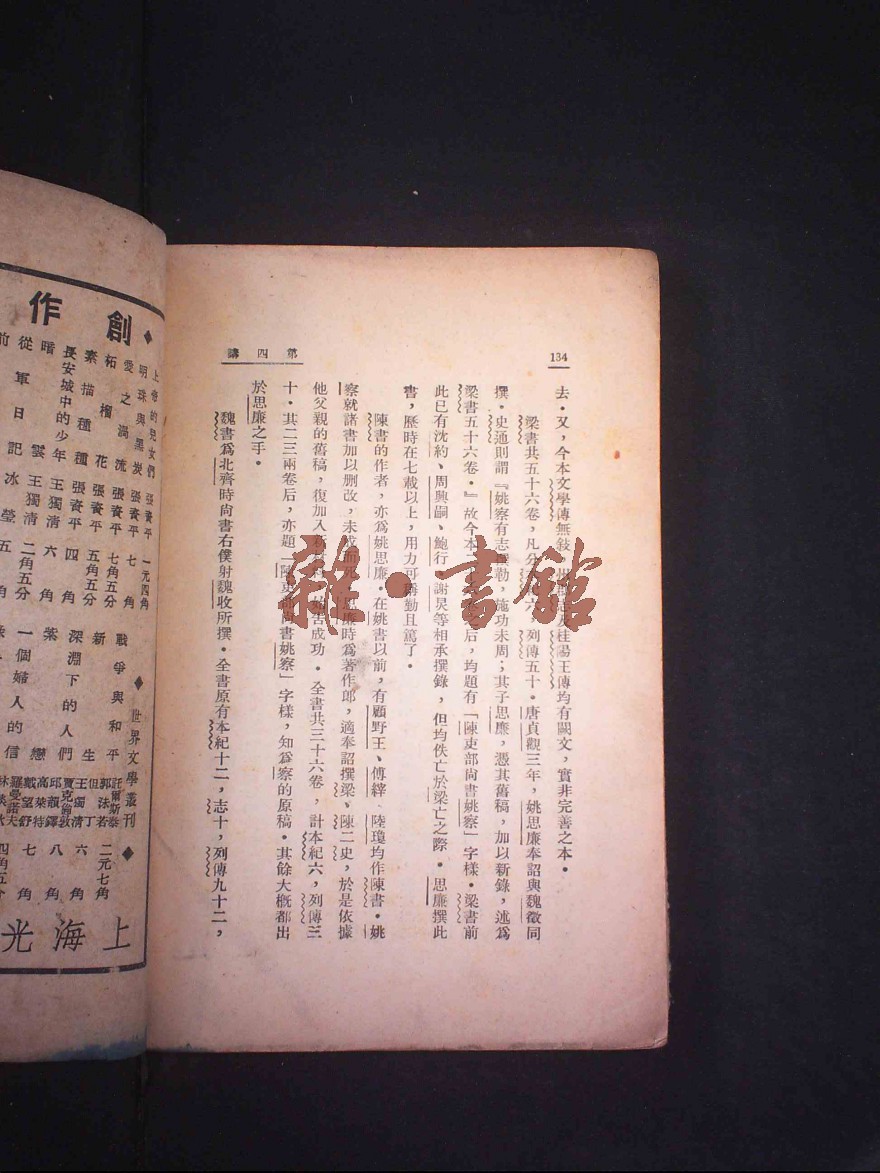 134
第四講
去．又，今本文學傳無敍，桂陽王傳均有闕文，實非完善之本．
梁書共五十六卷，凡分六，列傳五十．唐貞觀三年，姚思廉奉詔與魏徵同
撰．史通則謂『姚察有志撰勒，施功未周；其子思廉，憑其舊稿，加以新錄，述爲
梁書五十六卷．』故今本之后，均題有「陳吏部尙書姚察」字樣．梁書前
此已有沈約、周興嗣、鮑行、謝炅等相承撰錄，但均佚亡於梁亡之際．思廉撰此
書，歷時在七載以上，用力可謂勤且篤了．
陳書的作者，亦爲姚思廉．在姚書以前，有顧野王、傅縡、陸瓊均作陳書．姚
察就諸書加以刪改，未成而思廉時爲著作郎，適奉詔撰梁、陳二史，於是依據
他父親的舊稿，復加入始吿成功．全書共三十六卷，計本紀六，列傳三
十．其二三兩卷后，亦題「陳吏部尙書姚察」字樣，知爲察的原稿．其餘大槪都出
於思廉之手．
魏書爲北齊時尙書右僕射魏收所撰．全書原有本紀十二，志十，列傳九十二，
雜·書館
◆創作
上帝的兒女們 張資平 一元四角
明珠與黑炭 張資平 七角
愛之渦流 張資平 七角五分
柘榴花 張資平 五角五分
素描種種 張資平 四角
長安城中的少年 王獨清 六角
暗雲 王獨清 二角五分
從軍日記 冰瑩 五角
前
◆世界文學叢刊◆
戰爭與和平 託爾斯泰 郭沫若 二元七角
新生 但丁 王獨清 六角
深淵下的人們 賈克倫敦 邱韻鐸 八角
紫戀 高萊特 戴望舒 七角
一個婦人的信 四角五分
上海光